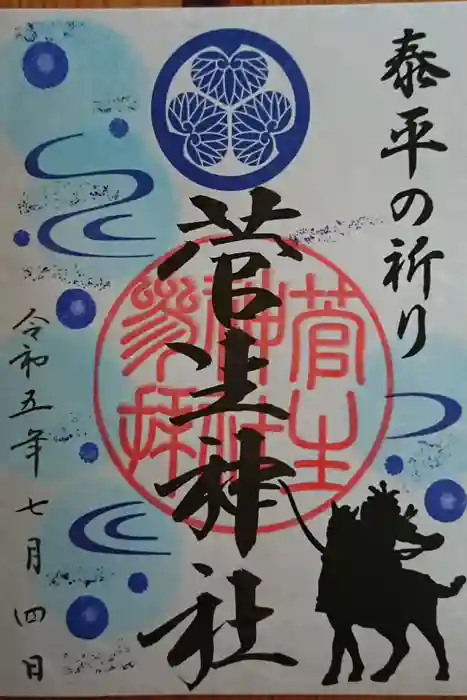 泰平の祈り
菅生神社
菅生神社参拝
令和五年七月四日